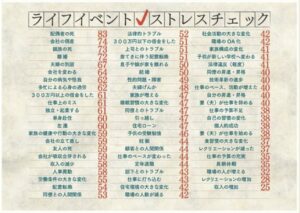 ライフイベント✓ストレスチェック
配偶者の死 83
会社の倒産 74
親族の死 73
離婚 72
夫婦の別居 67
会社を変わる 64
自分の病気や怪我 62
多忙による心身の過労 62
300万円以上の借金をした 61
仕事上のミス 61
独立・起業する 61
単身赴任 60
左遷 60
家族の健康や行動の大きな変化 59
会社の立て直し 59
友人の死 59
会社が吸収合併される 59
収入の減少 58
人事異動 58
労働条件の大きな変化 55
配置転換 54
同僚との人間関係 53
法律的トラブル 52
300万円以下の借金をした 51
上司とのトラブル 51
抜てきに伴う配置転換 51
息子や娘が家を離れる 50
結婚 50
性的問題・障害 49
夫婦げんか 48
家族が増える 47
睡眠習慣の大きな変化 47
同僚とのトラブル 47
引っ越し 47
住宅ローン 47
子供の受験勉強 46
妊娠 44
顧客との人間関係 44
仕事のペースが変わった 44
定年退職 44
部下とのトラブル 43
仕事に打ち込む 43
住宅環境の大きな変化 42
職場の人数が減る 42
社会活動の大きな変化 42
職場のOA化 42
家族構成の変化 41
子供が新しい学校へ変わる 41
同僚の昇進・昇格 40
技術革新の進歩 40
仕事のペース、活動が増えた 40
自分の昇進・昇格 40
妻(夫)が仕事を辞める 40
仕事の予算不足 38
自己の習慣の変化 38
個人的成功 38
妻(夫)が仕事を始める 38
食習慣の大きな変化 37
レクリエーションが減った 37
仕事の予算の充実 35
長期休暇 35
職場の人が増える 32
レクリエーションの増加 28
収入の増加 25